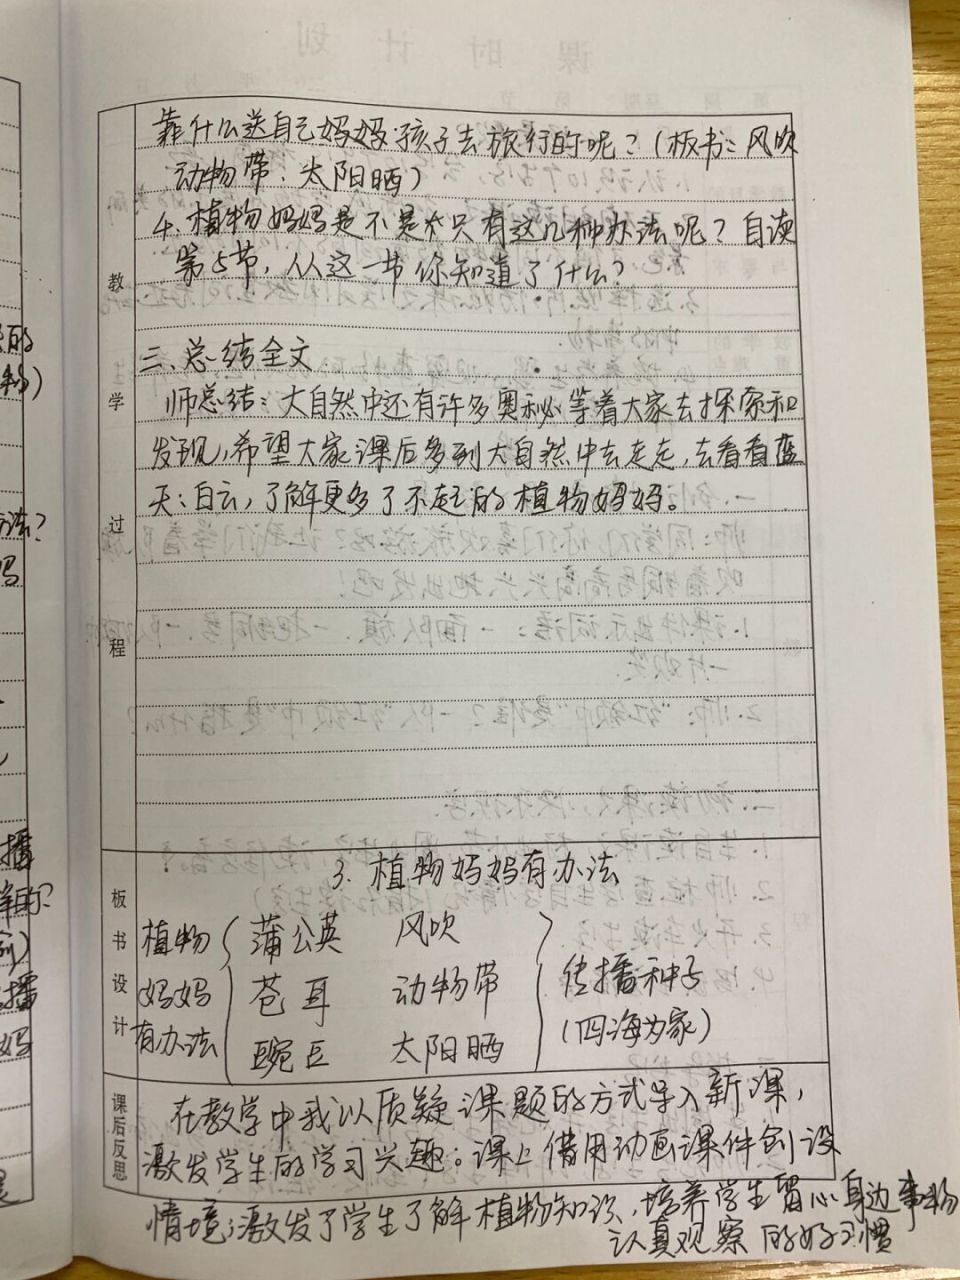 靠什么送自己妈妈孩子去旅行的呢？（板书：风吹
动物带、太阳晒）
4. 植物妈妈是不是只有这几种办法呢？自读
第5节，从这一节你知道了什么？
三、总结全文
师总结：大自然中还有许多奥秘等着大家去探索和
发现，希望大家课后多到大自然中去走走，去看看蓝
天、白云，了解更多了不起的植物妈妈。
教
学
过
程
板书设计
3. 植物妈妈有办法
植物 蒲公英 风吹
妈妈 苍耳 动物带 传播种子
有办法 豌豆 太阳晒 （四海为家）
课后反思
在教学中我以质疑课题的方式导入新课，
激发学生的学习兴趣。课上借用动画课件创设
情境，激发了学生了解植物知识，培养学生留心身边事物
认真观察的好习惯